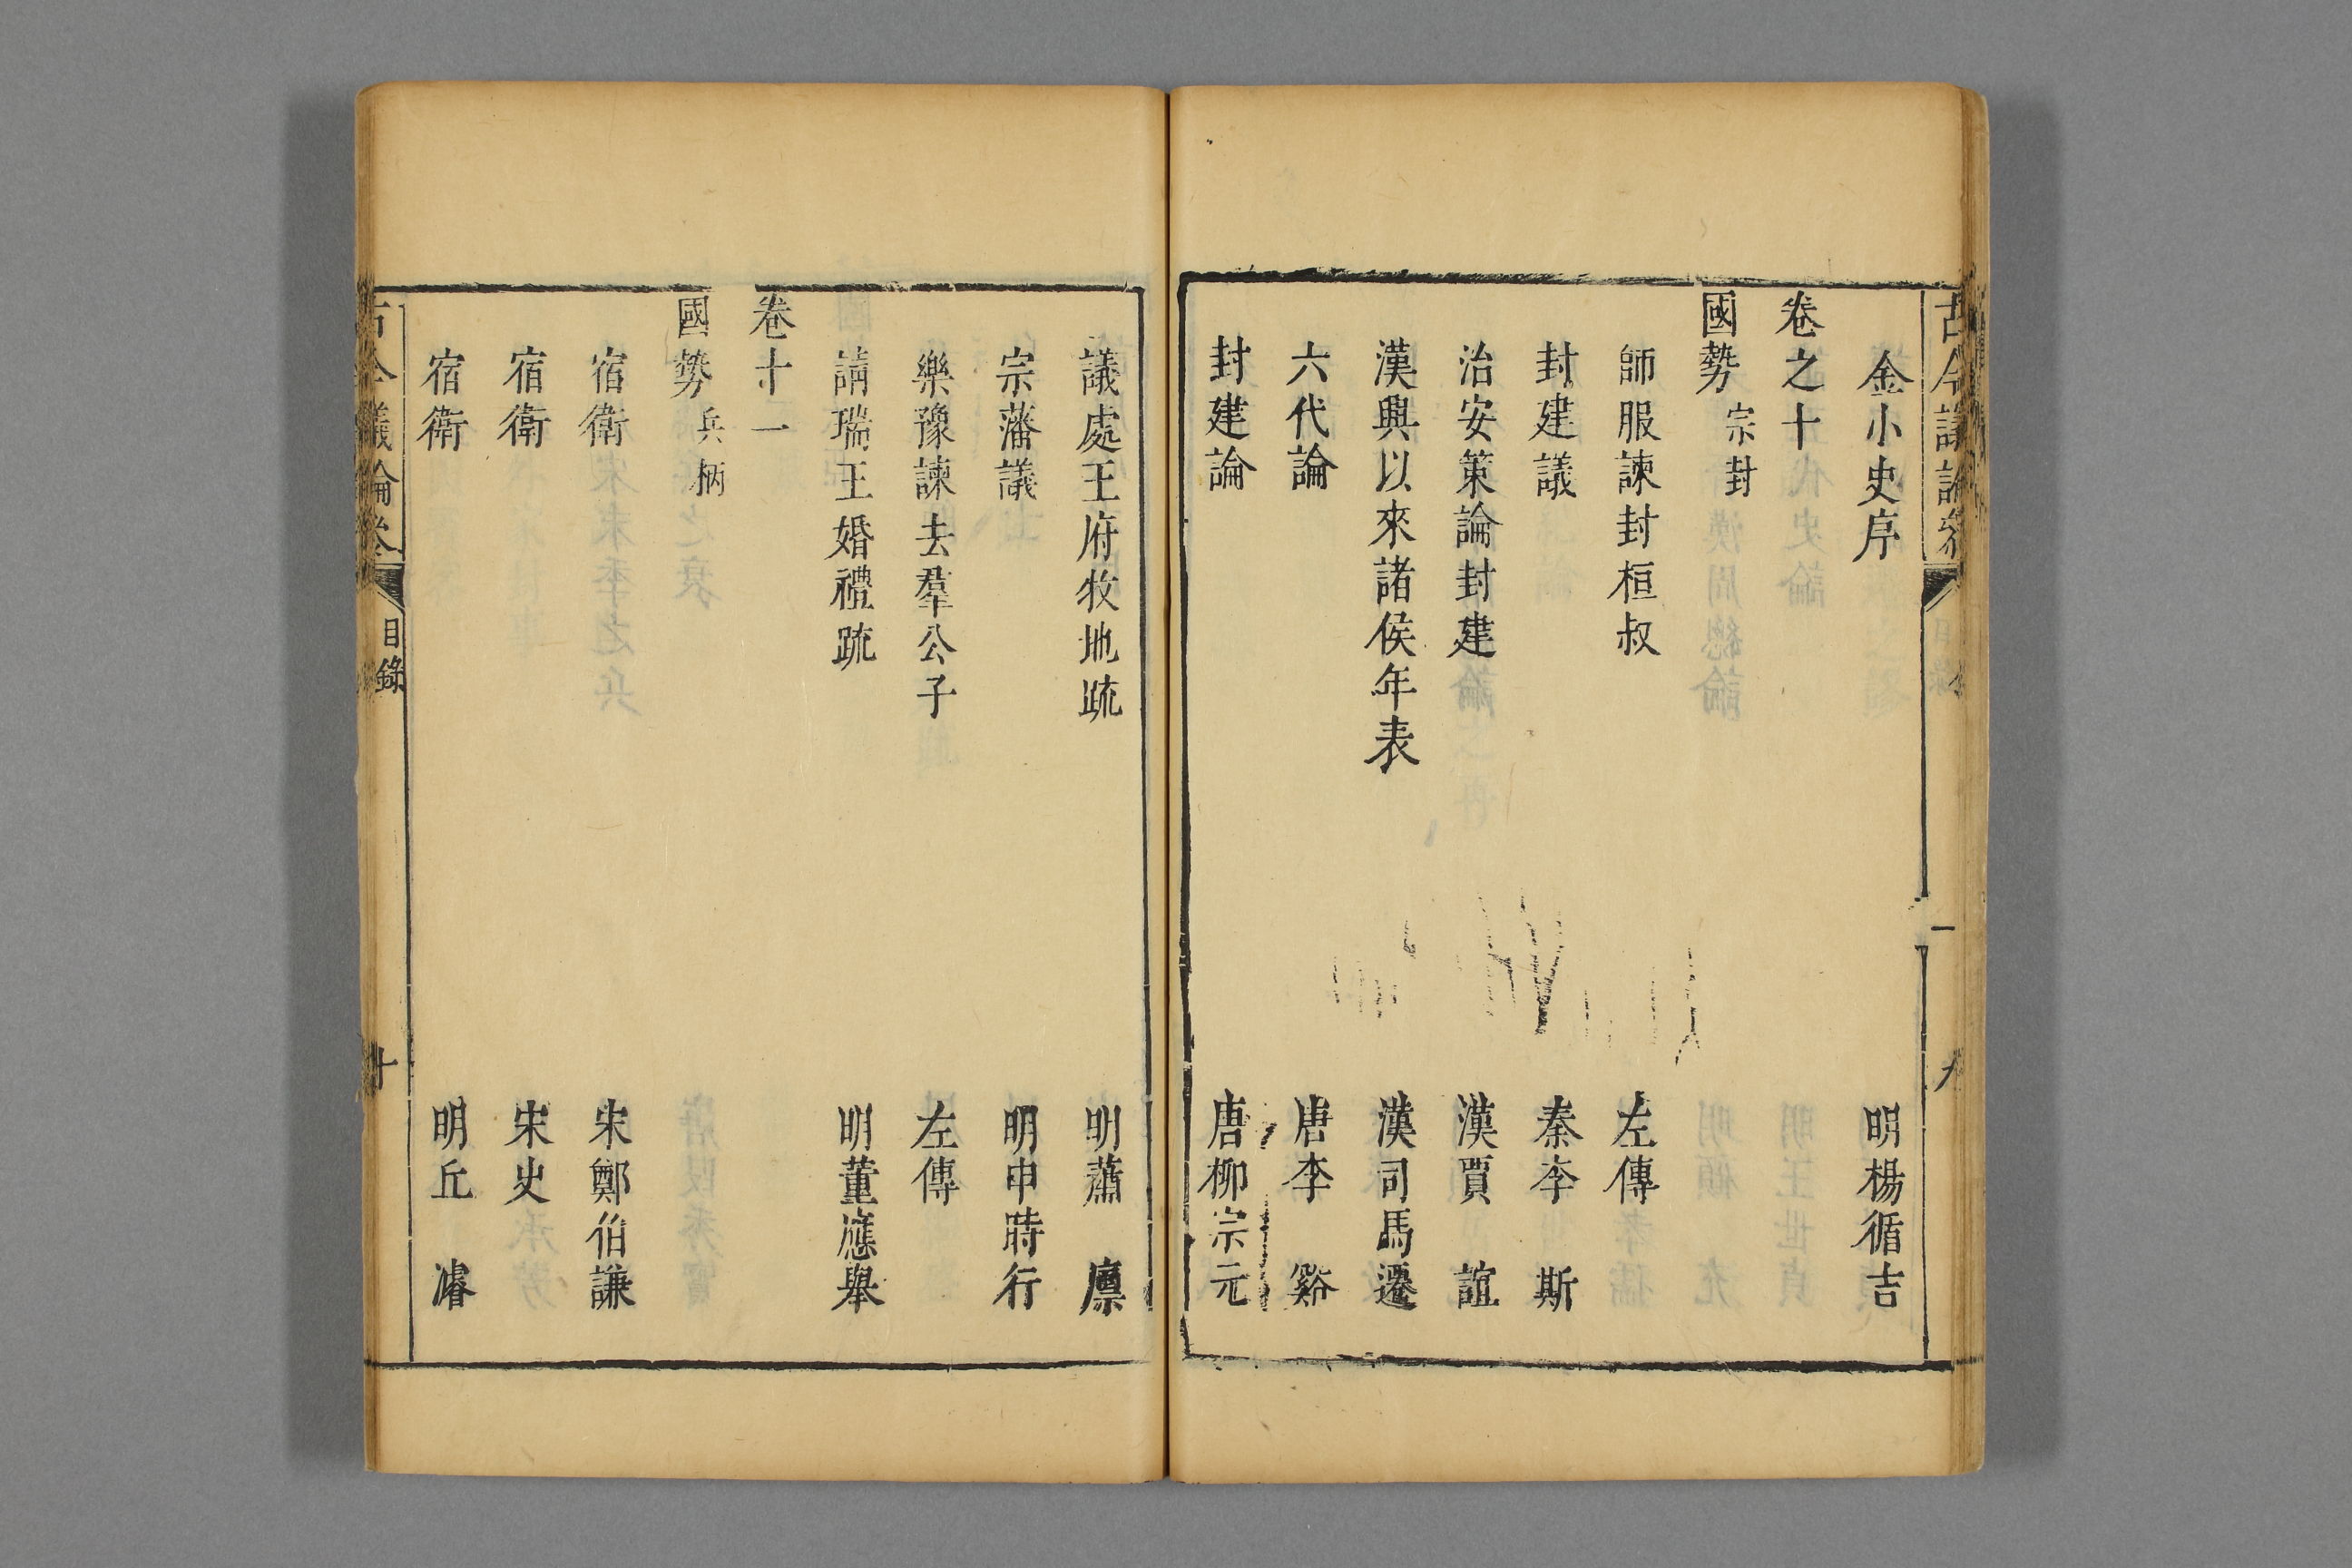 古今議論參
九
金小史序 明楊循吉
卷之十
國勢 宗封
師服諫封桓叔 左傳
封建議 秦李斯
治安策論封建 漢賈誼
漢興以來諸侯年表 漢司馬遷
六代論 唐李谿
封建論 唐柳宗元
議處王府牧地疏 明蕭廪
宗藩議 明申時行
樂豫諫去羣公子 左傳
請瑞王婚禮疏 明董應舉
卷十一
國勢 兵柄
宿衛 宋鄭伯謙
宿衛 宋史
宿衛 明丘濬
古今議論參 目錄 十